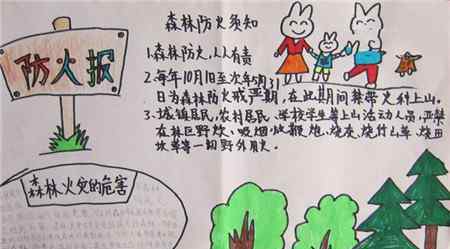 防火报
森林防火须知
1.森林防火,人人有责
2.每年10月1日至次年5月31
日为森林防火戒严期,在此期间禁带火种上山。
3.城镇居民,农村居民、学校学生等上山活动人员,严禁
在林区野炊、吸烟、放鞭炮、烧灰、烧竹山草、烧田
坎草等一切野外用火。
森林火灾的危害